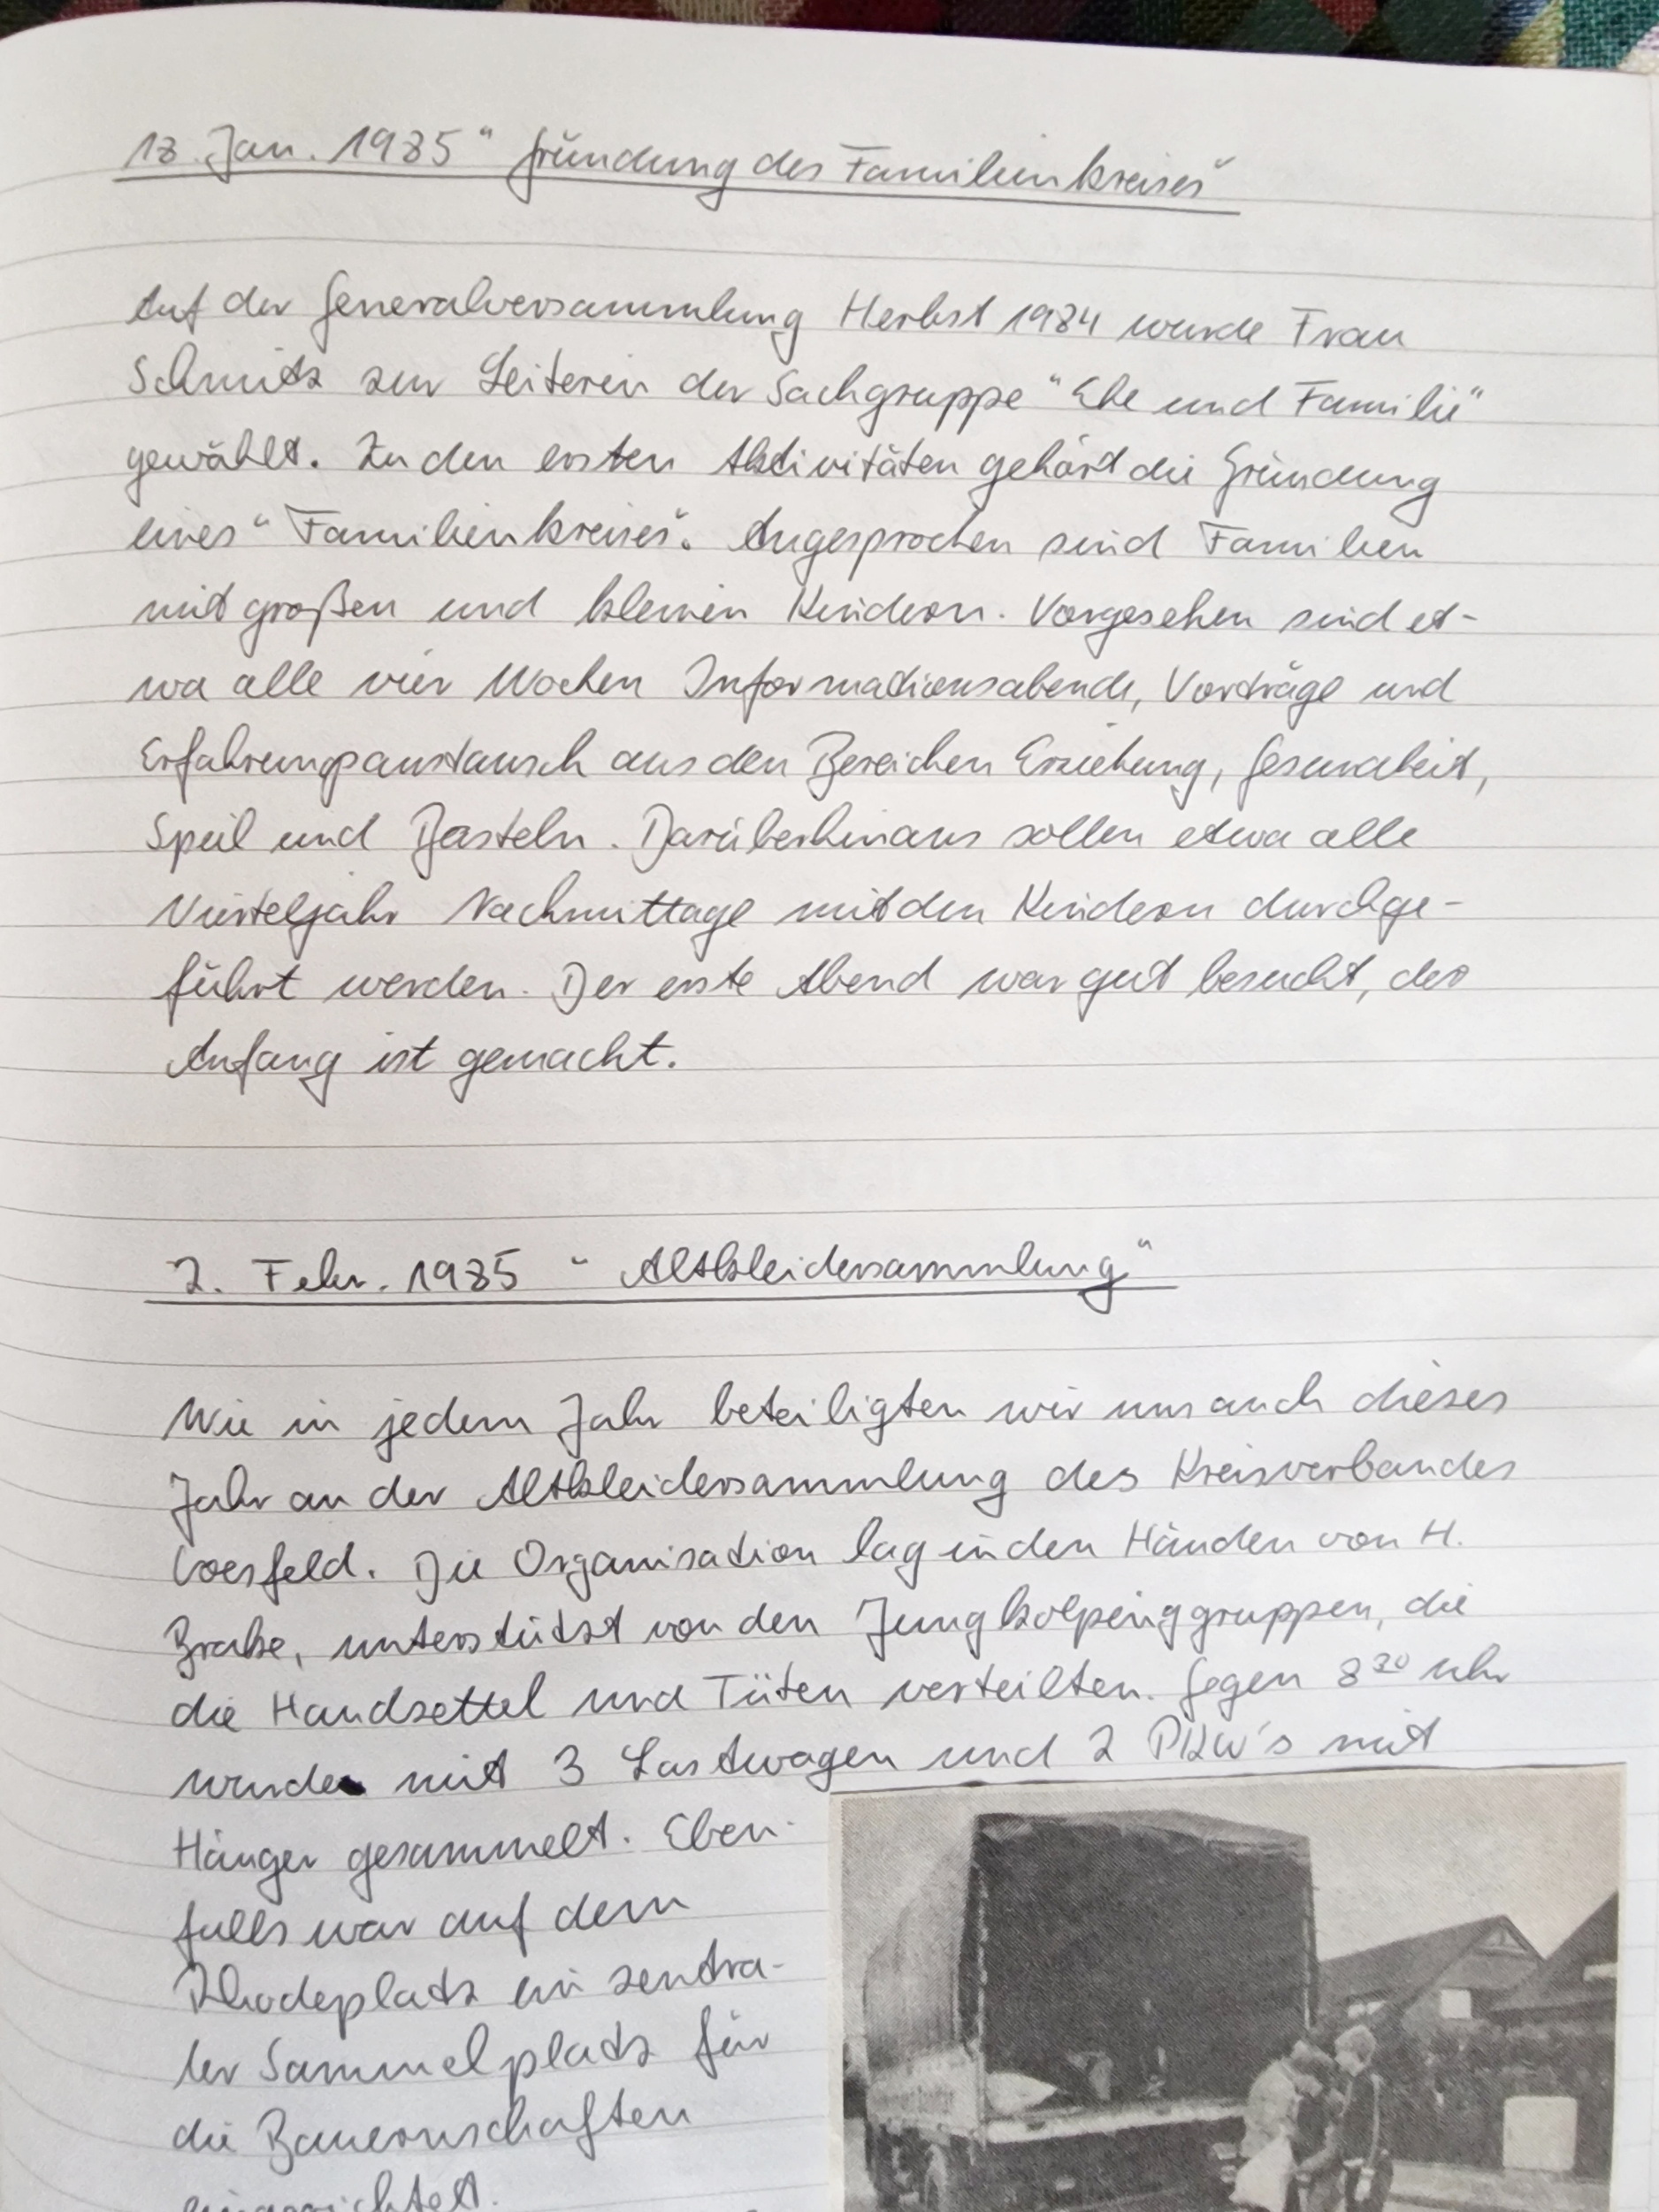 18. Jan. 1985 "Gründung des Familienkreises"
Auf der Generalversammlung Herbst 1984 wurde Frau
Schmitz zur Leiterin der Sachgruppe "Ehe und Familie"
gewählt. Zu den ersten Aktivitäten gehört die Gründung
eines "Familienkreises". Angesprochen sind Familien
mit großen und kleinen Kindern. Vorgesehen sind et-
wa alle vier Wochen Informationsabende, Vorträge und
Erfahrungsaustausch aus den Bereichen Erziehung, Gesundheit,
Spiel und Basteln. Darüberhinaus sollen etwa alle
Vierteljahr Nachmittage mit den Kindern durchge-
führt werden. Der erste Abend war gut besucht, der
Anfang ist gemacht.
2. Febr. 1985 "Altkleidersammlung"
Wie in jedem Jahr beteiligten wir uns auch dieses
Jahr an der Altkleidersammlung des Kreisverbandes
Coesfeld. Die Organisation lag in den Händen von H.
unterstützt von den Jungkolpinggruppen, die
die Handzettel und Tüten verteilten. Gegen 8³⁰ Uhr
wurde mit 3 Lastwagen und 2 PKW's mit
Hänger gesammelt. Eben-
falls war auf dem
ein zentra-
ler Sammelplatz für
die Bauernschaften
eingerichtet.